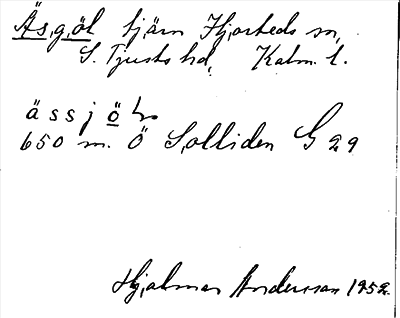 Äs,göl tjärn Hjorteds sn,
S. Tjusts hd, Kalm. l.
ässjö̱l.
650 m. Ö Solliden G 29
Hjalmar Andersson 1952.